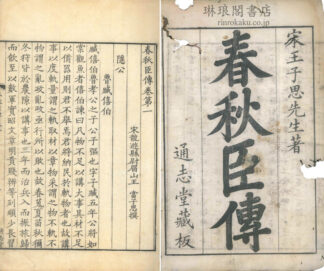 琳琅閣書店
rinrokaku.co.jp
宋王子思先生著
春秋臣傳
通志堂藏板
春秋臣傳卷第一
宋龍遊縣尉眉山王當子思撰
隱公
魯臧僖伯
臧僖伯魯孝公之子公子彄也字子臧五年公將如
棠觀魚者僖伯諫曰凡物不足以講大事其材不足
以備器用則君不舉焉君將納民於軌物者也故講
事以度軌量謂之軌取材以章物采謂之物不軌不
物謂之亂政亂政亟行所以敗也故春蒐夏苗秋獮
冬狩皆於農隙以講事也三年而治兵入而振旅歸
而飲至以數軍實昭文章明貴賤辨等列順少長習